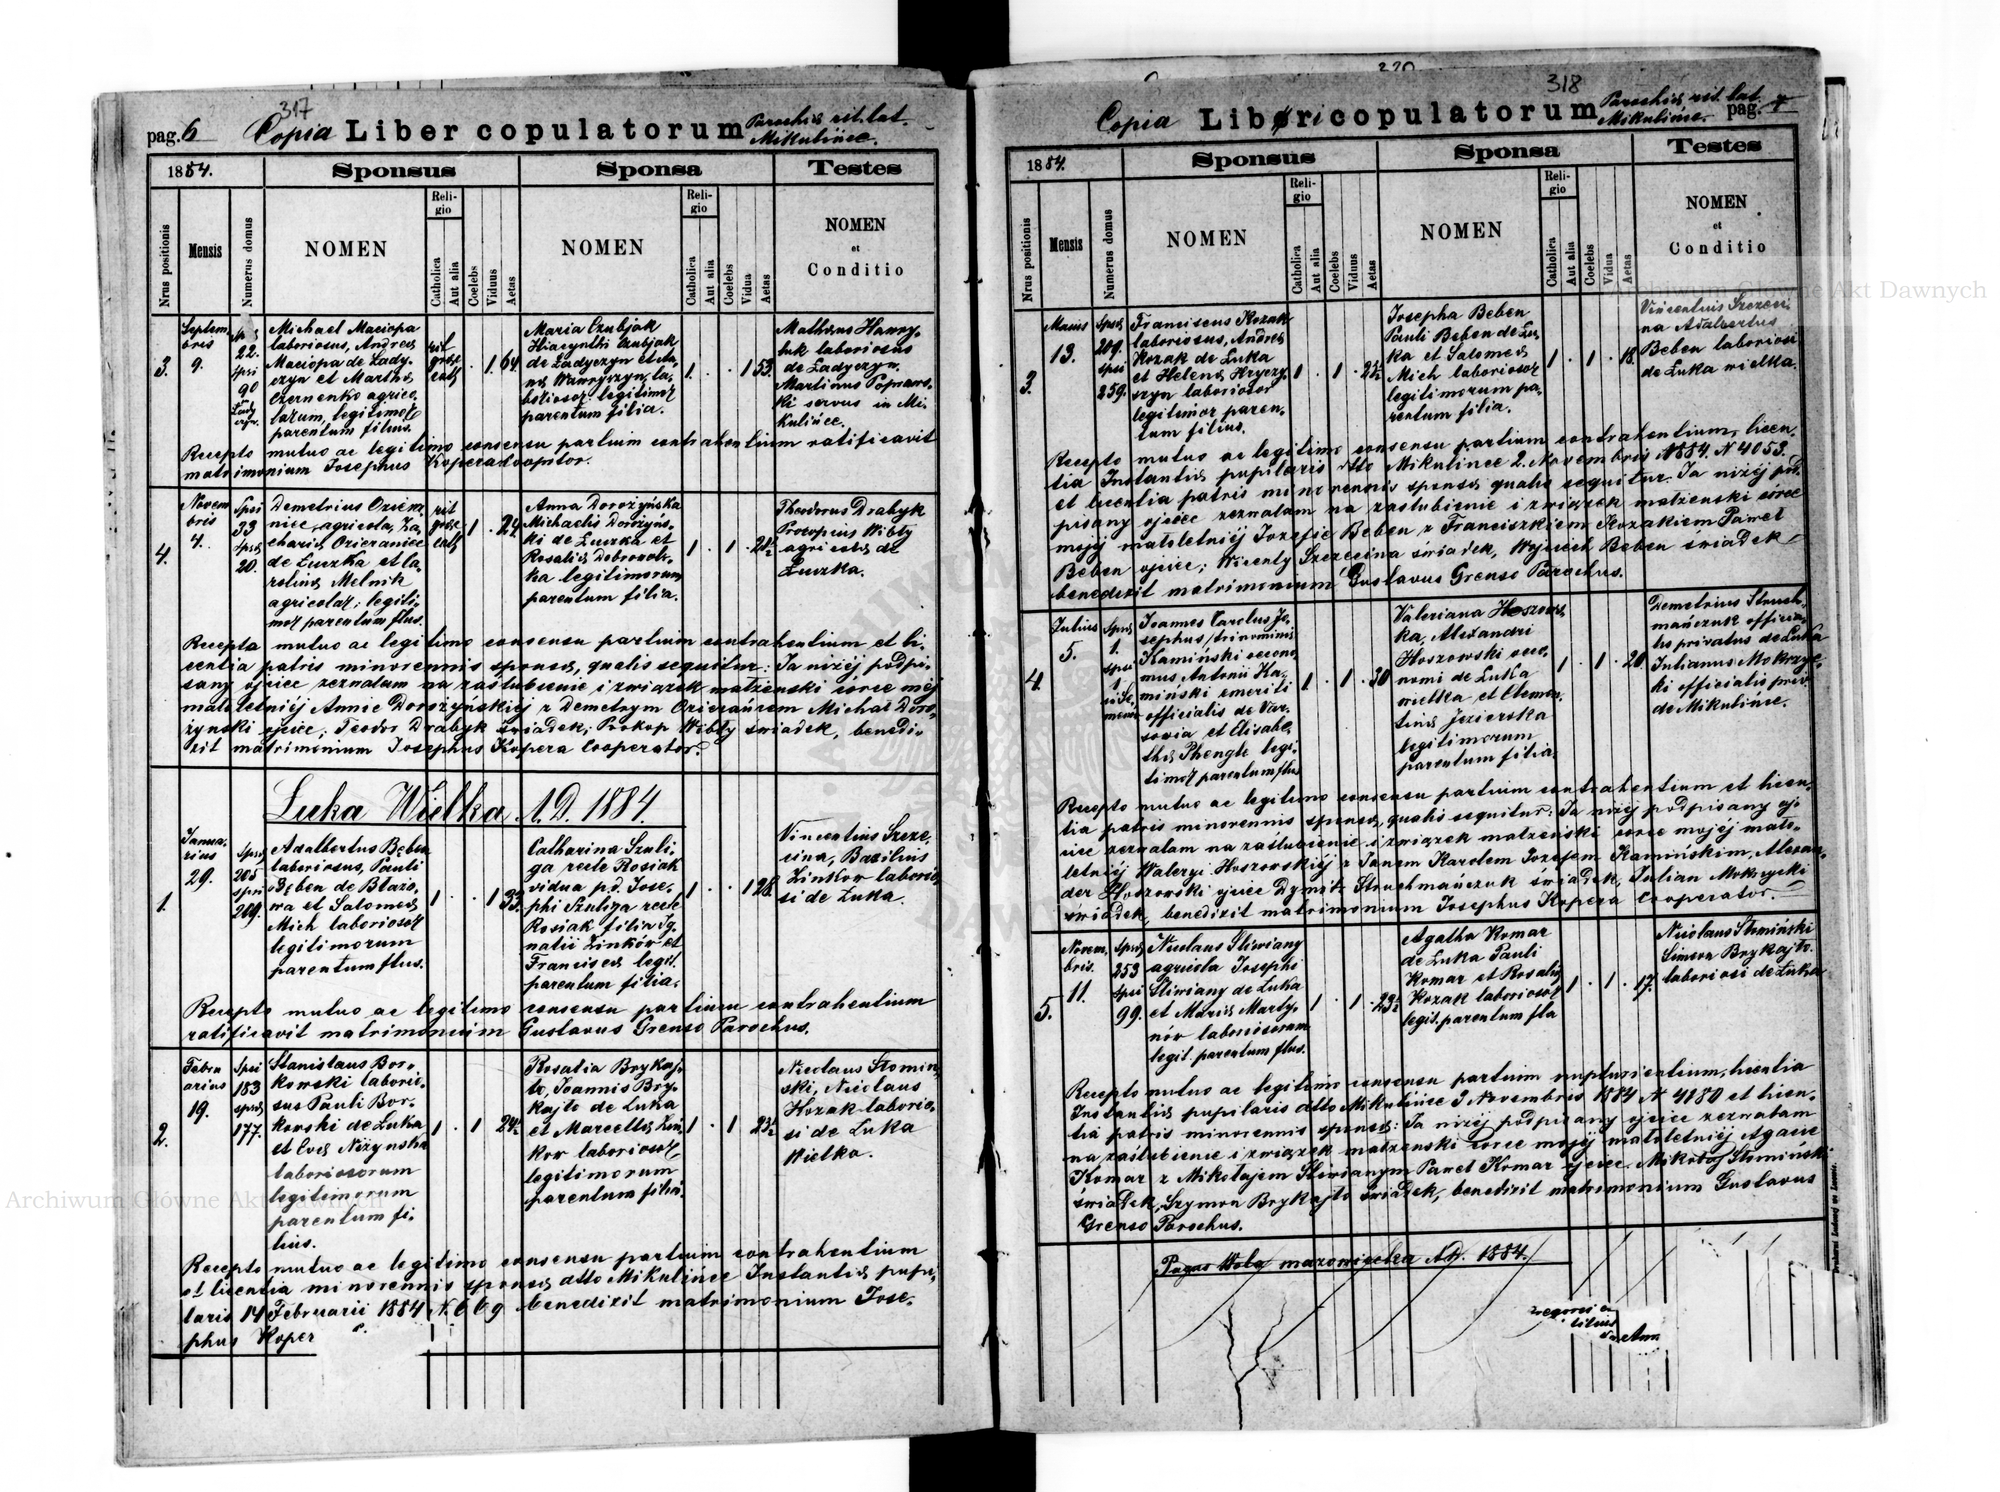 317
pag. 6 Copia Liber copulatorum Parochiæ rit. lat.
Mikulińce.
1884. Sponsus Sponsa Testes
Nrus positionis
Mensis
Numerus domus
NOMEN
Religio
Catholica
Aut alia
Coelebs
Viduus
Aetas
NOMEN
Religio
Catholica
Aut alia
Coelebs
Vidua
Aetas
NOMEN
et
Conditio
3.
Septem-
bris
9.
22.
spsi
90
Michael Maciopa
laboriosus, Andreæ
Maciopa de Lady-
czyn et Marthæ
Czernenko agrico-
larum, legitimor
parentum filius.
rit
græc
cath
1 64
Maria Czubjak
Hiacynthi Czubjak
de Ladyczyn et An-
næ Wawryczyn, la-
boriosor legitimor
parentum filia.
1. 1 53.
Mathæus Hawry-
luk laboriosus
de Ladyczyn.
Martinus Popraws-
ki servus in Mi-
kulińce.
Recepto mutuo ac legitimo consensu partium contrahentium ratificavit
matrimonium Josephus Kopera
4.
Novem
bris
4.
Spsi
33
spsæ
20.
Demetrius Oziera-
niec, agricola, Za-
chariæ Ozieraniec
de Łuczka et Ca-
rolinæ Melnik
agricolar; legiti-
mor parentum flus.
rit
græc
cath
1 . 24.
Anna Dorożyńska
Michaelis Dorożyńs-
ki de Łuczka et
Rosaliæ Dobrowols-
ka legitimorum
parentum filia.
1 . 1 . 21½
Theodorus Drabyk
Procopius Wibły
agricolæ de
Łuczka.
Recepto mutuo ac legitimo consensu partium contrahentium et li-
centia patris minorennis sponsæ, qualis sequitur: Ja niżéj podpi-
sany ojciec zezwalam na zaślubienie i związek małżenski córce méj
małoletniéj Annie Dorożynskiéj z Demetrym Ozierańcem Michał Doro-
żynski ojciec; Teodor Drabyk świadek; Prokop Wibły świadek, benedi-
xit matrimonium Josephus Kopera Cooperator.
Łuka Wielka A.D. 1884.
1.
Janua-
rius
29.
Spsæ
205
spsi
209.
Adalbertus Beben
laboriosus, Pauli
Beben de Błażo-
wa et Salomeæ
Mich laboriosor
legitimorum
parentum flus.
1 . . 1 33.
Catharina Szuli-
ga recte Rosiak
vidua p.d. Jose-
phi Szuliga recte
Rosiak filia Ig-
natii Zinków et
Franciscæ legit.
parentum filia.
1 . . 1 28.
Vincentius Szcze-
cina, Basilius
Zinkow laborio-
si de Łuka.
Recepto mutuo ac legitimo consensu partium contrahentium
ratificavit matrimonium Gustavus Grenso Parochus.
2.
Febru
arius
19.
Spsi
183
spsæ
177.
Stanislaus Bor-
kowski laborio-
sus Pauli Bor-
kowski de Łuka
et Evæ Niżynska
laboriosorum
legitimorum
parentum fi-
lius.
1 . 1 . 24½
Rosalia Brykaj-
ło, Joannis Bry-
kajło de Łuka
et Marcellæ Zin-
kow laboriosor
legitimorum
parentum filia.
1 . 1 . 23½
Nicolaus Słomin-
ski, Nicolaus
Kozak laborio-
si de Łuka
Wielka.
Recepto mutuo ac legitimo consensu partium contrahentium
et licentia minorennis sponsæ dtto Mikulińce Instantiæ pupi-
laris 14 Februarii 1884 N. 669 benedixit matrimonium Jose-
phus Koper
320
318
Copia Libri copulatorum Parochiæ rit. lat.
Mikulińce. pag. 7
1884. Sponsus Sponsa Testes
Nrus positionis
Mensis
Numerus domus
NOMEN
Religio
Catholica
Aut alia
Coelebs
Viduus
Aetas
NOMEN
Religio
Catholica
Aut alia
Coelebs
Vidua
Aetas
NOMEN
et
Conditio
3.
Maius
13.
Spsæ
209.
spsi
259.
Franciscus Kozak
laboriosus, Andreæ
Kozak de Łuka
et Helenæ Hryczy-
szyn laboriosor
legitimor paren-
tum filius.
1 . 1 . 25½
Josepha Beben
Pauli Beben de Łu-
ka et Salomeæ
Mich laboriosor
legitimorum pa-
rentum filia.
1 . 1 . 18.
Vincentius Szczeci-
na Adalbertus
Beben laboriosi
de Łuka wielka.
Recepto mutuo ac legitimo consensu partium contrahentium, licen-
tia Instantiæ pupilaris dtto Mikulińce 2. Novembris 1884. N 4053.
et licentia patris minorennis sponsæ qualis sequitur. Ja niżéj pod-
pisany ojciec zezwalam na zaślubienie i związek małżenski córce
mojéj małoletniéj Jozefie Beben z Franciszkiem Kozakiem Paweł
Beben ojciec; Wicenty Szczecina świadek, Wojciech Beben świadek
benedixit matrimonium Gustavus Grenso Parochus.
4.
Julius
5.
Spsæ
1.
spsi
1
Joannes Carolus Jo-
sephus /trinominis/
Kamiński œcono-
mus, Antonii Ka-
miński emeriti
officialis de Var-
sovia et Elisabe-
thæ Phengle legi-
timor parentum flus
1 . 1 . 30
Valeriana Hoszows-
ka, Alexandri
Hoszowski œco-
nomi de Łuka
wielka et Clemen-
tinæ Jezierska
legitimorum
parentum filia.
1 . 1 . 20.
Demetrius Struch-
mańczuk officia-
lis privatus de Łuka
Julianus Mokrzyc-
ki officialis priv.
de Mikulińce.
Recepto mutuo ac legitimo consensu partium contrahentium et licen-
tia patris minorennis sponsæ, qualis sequitur: Ja niżéj podpisany oj-
ciec zezwalam na zaślubienie i związek małżenski córce mojéj mało-
letniéj Waleryi Hoszowskiéj z Janem Karolem Jozefem Kamińskim, Alexan-
der Hoszowski ojciec Dymitr Struchmańczuk świadek, Julian Mokrzycki
świadek, benedixit matrimonium Josephus Kopera Cooperator.
5.
Novem-
bris.
11.
Spsæ
253
spsi
99.
Nicolaus Śliwiany
agricola Josephi
Śliwiany de Łuka
et Mariæ Marty-
nów laboriosorum
legit. parentum flus.
1 . 1 . 23½
Agatha Komar
de Łuka Pauli
Komar et Rosaliæ
Kozak laboriosor
legit. parentum fla
1 . 1 . 17.
Nicolaus Słomiński
Simeon Brykajło.
laboriosi de Łuka
Recepto mutuo ac legitimo consensu partium nupturientium, licentia
Instantiæ pupilaris dtto Mikulińce 3 Novembris 1884 N 4180 et licen-
tia patris minorennis sponsæ: Ja niżéj podpisany ojciec zezwalam
na zaślubienie i związek małżenski córce mojéj małoletniéj Agacie
Komar z Mikołajem Śliwianym Paweł Komar ojciec. Mikołaj Słomiński
świadek, Szymon Brykajło świadek, benedixit matrimonium Gustavus
Grenso Parochus.
Pagus Wola mazowiecka A.D. 1884.
Archiwum Główne Akt Dawnych
Archiwum Główne Akt Dawnych